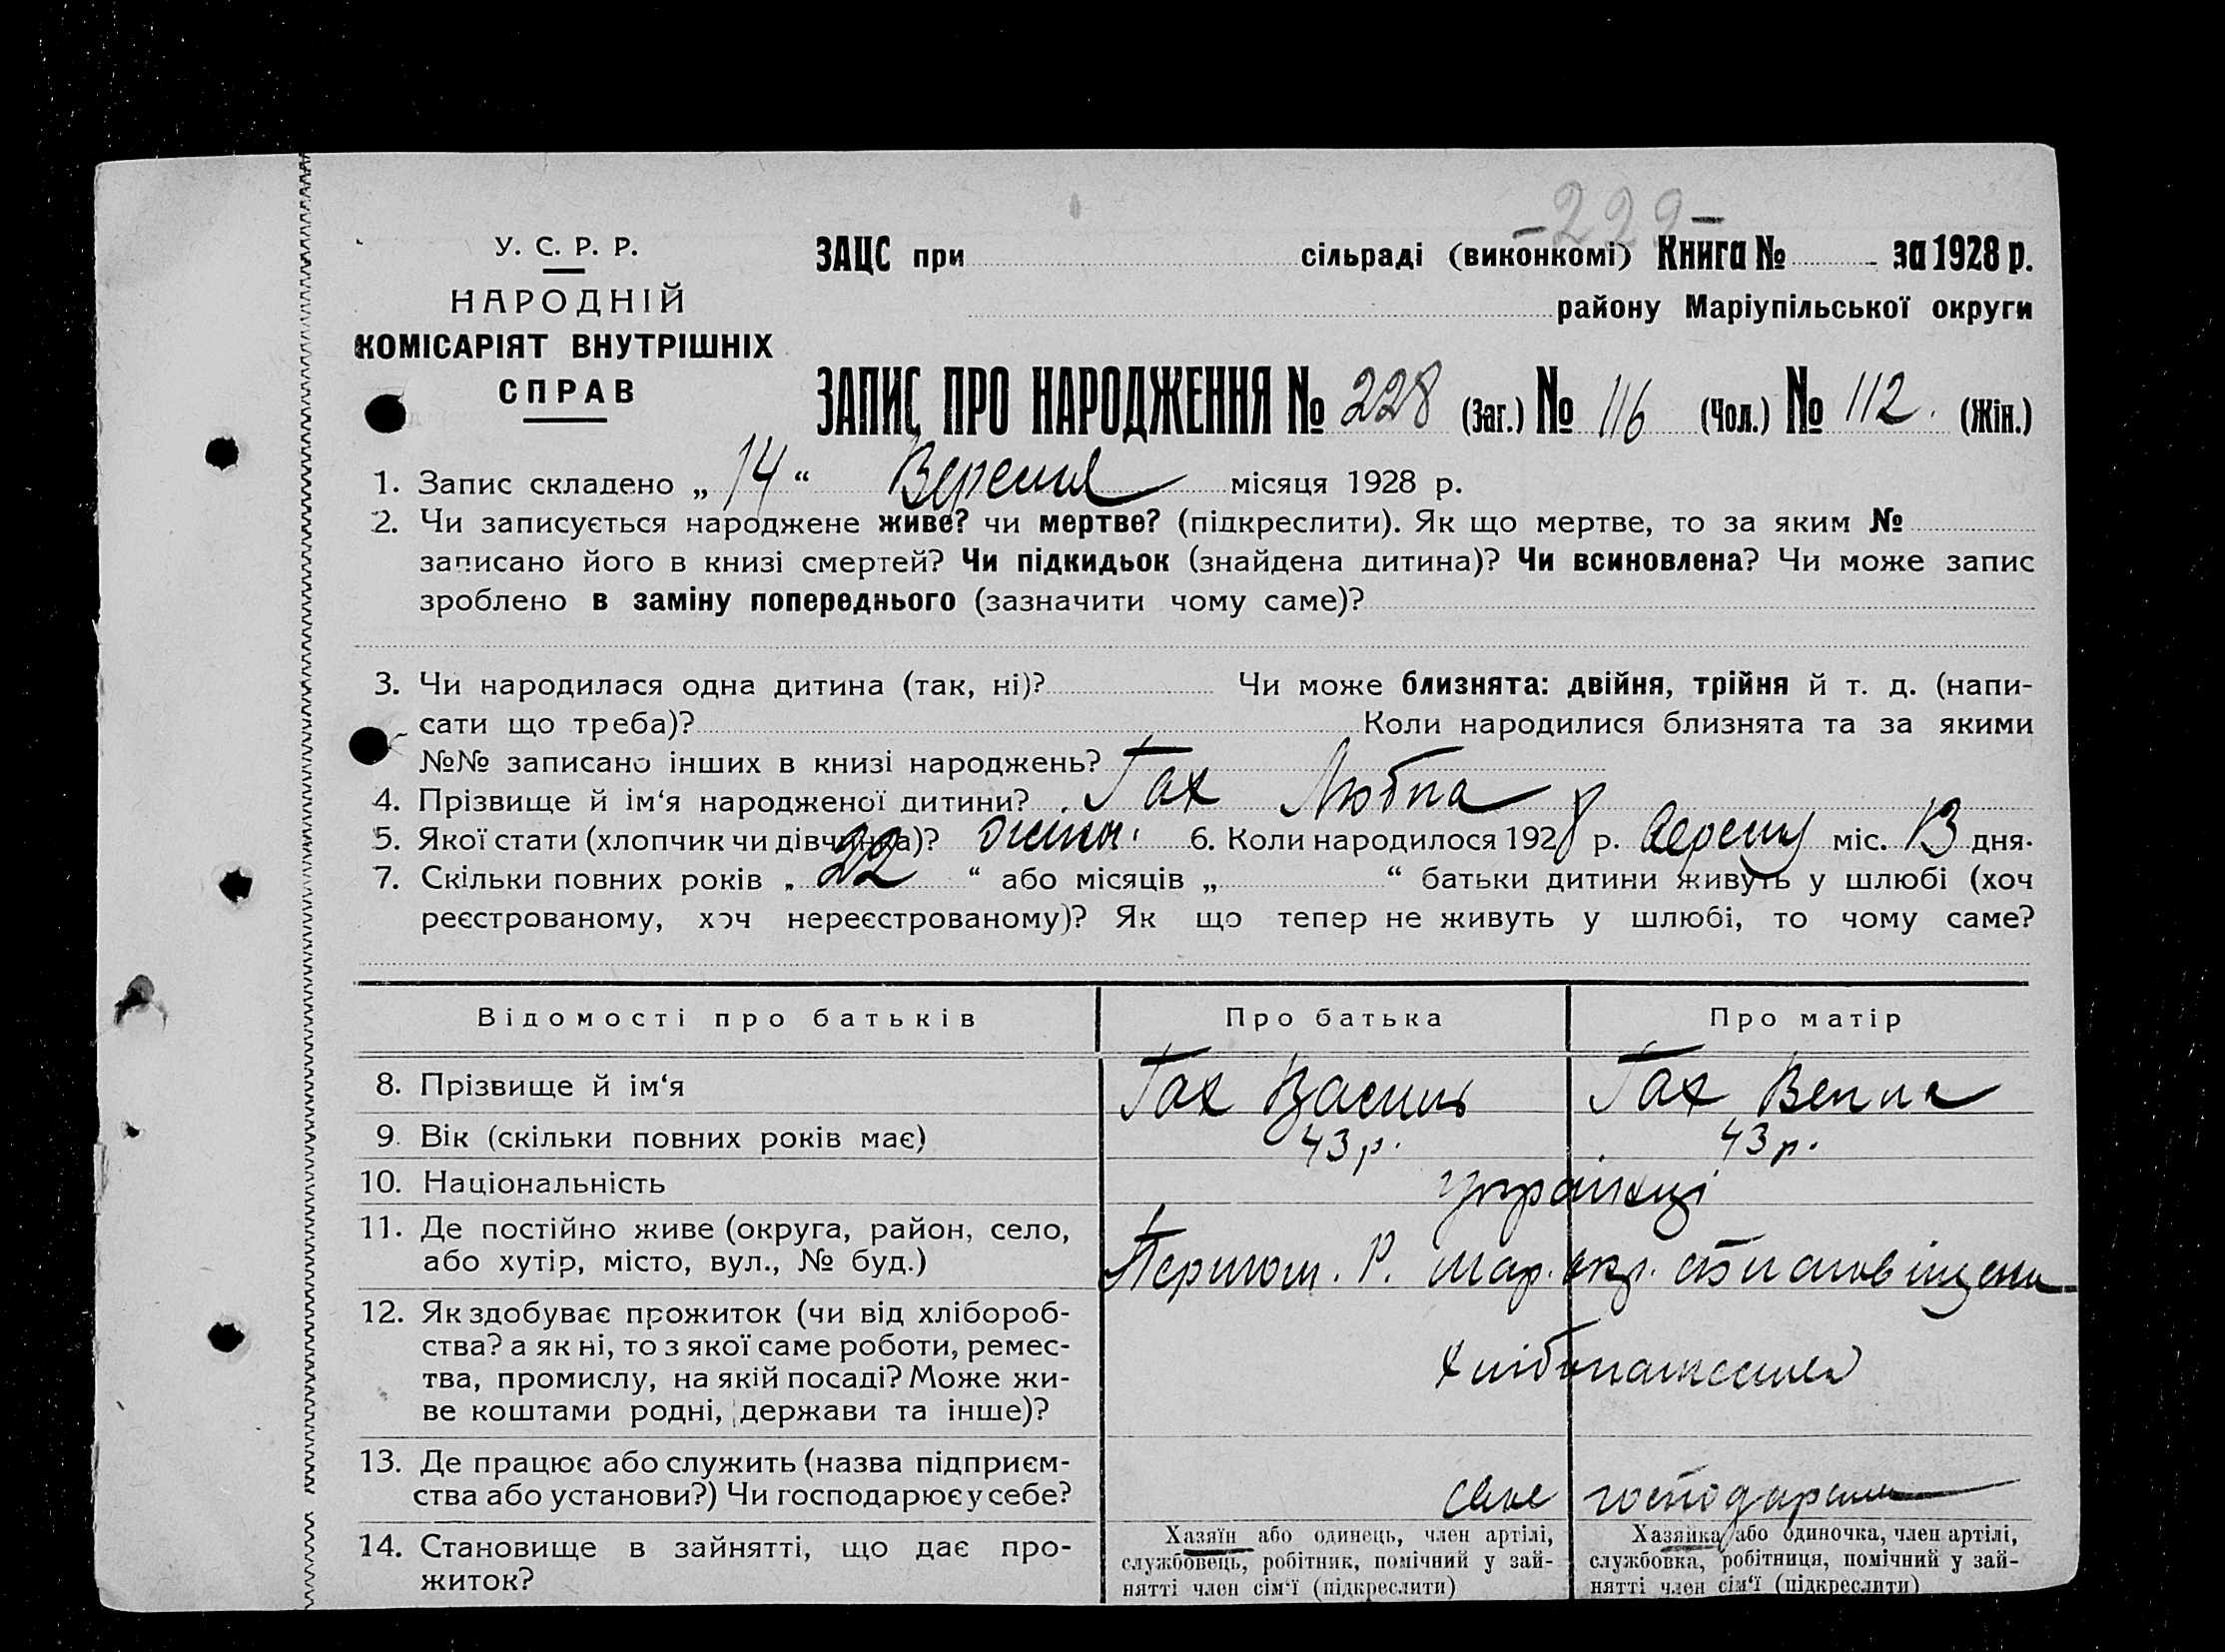 -229-
У. С. Р. Р.
НАРОДНІЙ
КОМІСАРІЯТ ВНУТРІШНІХ
СПРАВ
ЗАЦС при сільраді (виконкомі) Книга № за 1928 р.
району Маріупільської округи
ЗАПИС ПРО НАРОДЖЕННЯ № 228 (Заг.) № 116 (Чол.) № 112. (Жін.)
1. Запис складено „14“ Вересня місяця 1928 р.
2. Чи записується народжене живе? чи мертве? (підкреслити). Як що мертве, то за яким №
записано його в книзі смертей? Чи підкидьок (знайдена дитина)? Чи всиновлена? Чи може запис
зроблено в заміну попереднього (зазначити чому саме)?
3. Чи народилася одна дитина (так, ні)? Чи може близнята: двійня, трійня й т. д. (напи-
сати що треба)? Коли народилися близнята та за якими
№№ записано інших в книзі народжень?
4. Прізвище й ім‘я народженої дитини? Гах Любпа
5. Якої стати (хлопчик чи дівчинка)? 6. Коли народилося 1928 р. міс. 13 дня.
7. Скільки повних років „22“ або місяців „ “ батьки дитини живуть у шлюбі (хоч
реєстрованому, хоч нереєстрованому)? Як що тепер не живуть у шлюбі, то чому саме?
Відомості про батьків Про батька Про матір
8. Прізвище й ім‘я Гах Василь Гах
9. Вік (скільки повних років має) 43 р. 43 р.
10. Національність Українці
11. Де постійно живе (округа, район, село,
або хутір, місто, вул., № буд.) Р. Мар. окр.
12. Як здобуває прожиток (чи від хлібороб-
ства? а як ні, то з якої саме роботи, ремес-
тва, промислу, на якій посаді? Може жи-
ве коштами родні, держави та інше)?
13. Де працює або служить (назва підприєм-
ства або установи?) Чи господарює у себе? своє
14. Становище в зайнятті, що дає про-
житок?
Хазяїн або одинець, член артілі,
службовець, робітник, помічний у зай-
нятті член сім‘ї (підкреслити)
Хазяйка або одиночка, член артілі,
службовка, робітниця, помічний у зай-
нятті член сім‘ї (підкреслити)